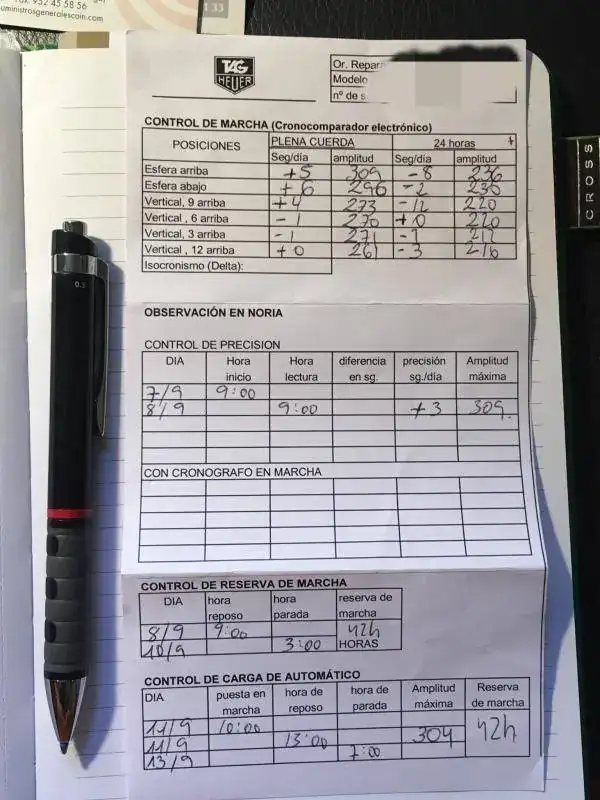 952 45 58 56
uministrosgeneralescoin.com
133
TAG
HEUER
Or. Repar
Modelo
nº de s
CROSS
CONTROL DE MARCHA (Cronocomparador electrónico)
POSICIONES PLENA CUERDA 24 horas +
Seg/día amplitud Seg/día amplitud
Esfera arriba +5 309 -8 236
Esfera abajo +6 296 -2 230
Vertical, 9 arriba +4 273 -12 220
Vertical , 6 arriba -1 270 +0 220
Vertical, 3 arriba -1 271 -7 217
Vertical, 12 arriba +0 261 -3 216
Isocronismo (Delta):
OBSERVACIÓN EN NORIA
CONTROL DE PRECISION
DIA Hora inicio Hora lectura diferencia en sg. precisión sg./día Amplitud máxima
7/9 9:00
8/9 9:00 +3 309.
CON CRONOGRAFO EN MARCHA
CONTROL DE RESERVA DE MARCHA
DIA hora reposo hora parada reserva de marcha
8/9 9:00 42h
10/9 3:00 HORAS
CONTROL DE CARGA DE AUTOMÁTICO
DIA puesta en marcha hora de reposo hora de parada Amplitud máxima Reserva de marcha
11/9 10:00
11/9 13:00 304 42h
13/9 7:00
0.5